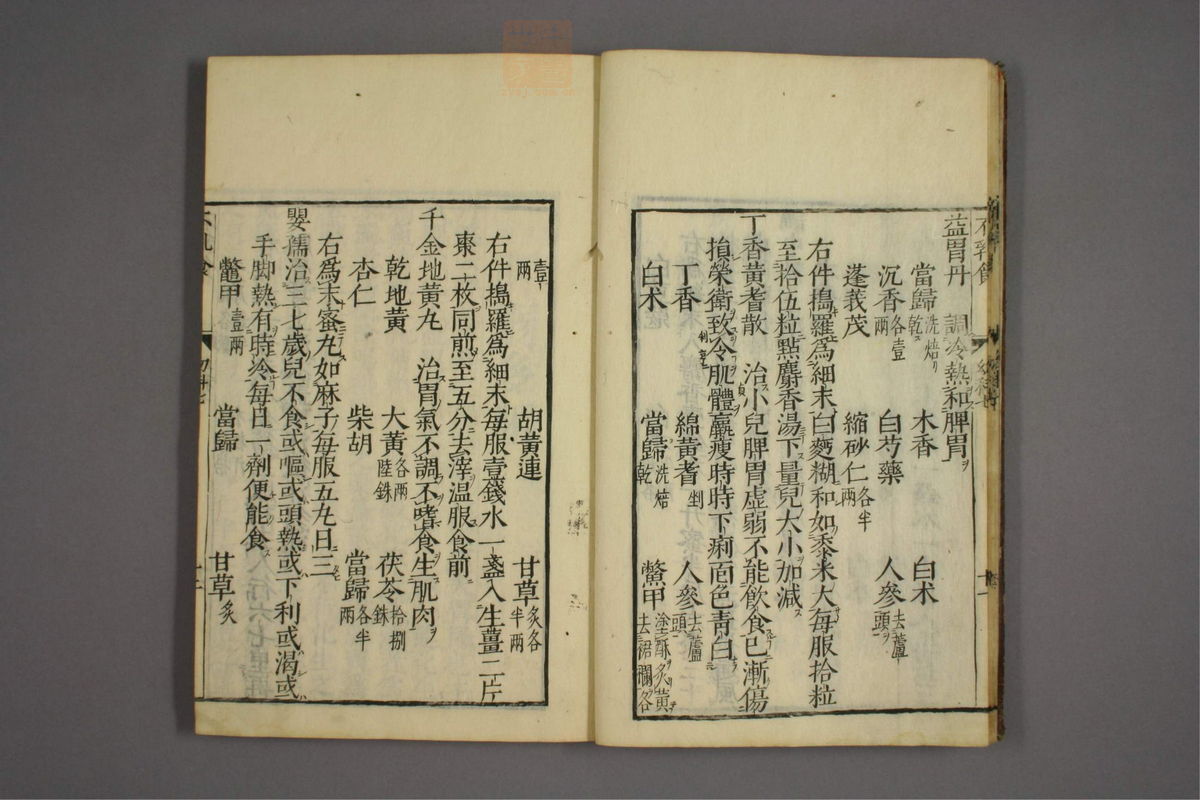 益胃丹　調冷熱和脾胃
當歸洗焙乾　木香　白朮
沉香各壹兩　白芍藥　人參去蘆頭
蓬莪茂　縮砂仁各半兩
右件搗羅爲細末白麪糊和如黍米大每服拾粒
至拾伍粒點麝香湯下量兒大小加減
丁香黄耆散　治小兒脾胃虛弱不能飲食已漸傷
損榮衛致令肌體羸瘦時時下痢面色青白
丁香　綿黄耆剉　人參去蘆頭
白朮　當歸洗焙乾　鱉甲塗酥炙黄去裙襴各
壹兩　胡黄連　甘草炙各半兩
右件搗羅爲細末每服壹錢水一盞入生薑二片
棗二枚同煎至五分去滓温服食前
千金地黄丸　治胃氣不調不嗜食生肌肉
乾地黄　大黄各兩陸銖　茯苓拾捌銖
杏仁　柴胡　當歸各半兩
右爲末蜜丸如麻子每服五丸日三
嬰孺治三七歲兒不食或嘔或頭熱或下利或渴或
手脚熱有時冷每日一劑便能食
鱉甲壹兩　當歸　甘草炙